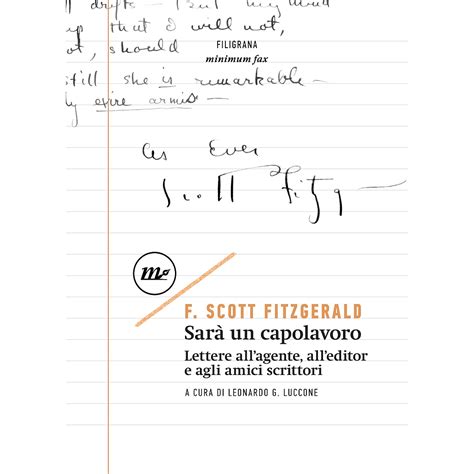 drifts — But my mind
up that I will not,
ot, should
still she is remarkable —
ly
FILIGRANA
minimum fax
As Ever
Scott Fitzg
m
F. SCOTT FITZGERALD
Sarà un capolavoro
Lettere all'agente, all'editor
e agli amici scrittori
A CURA DI LEONARDO G. LUCCONE